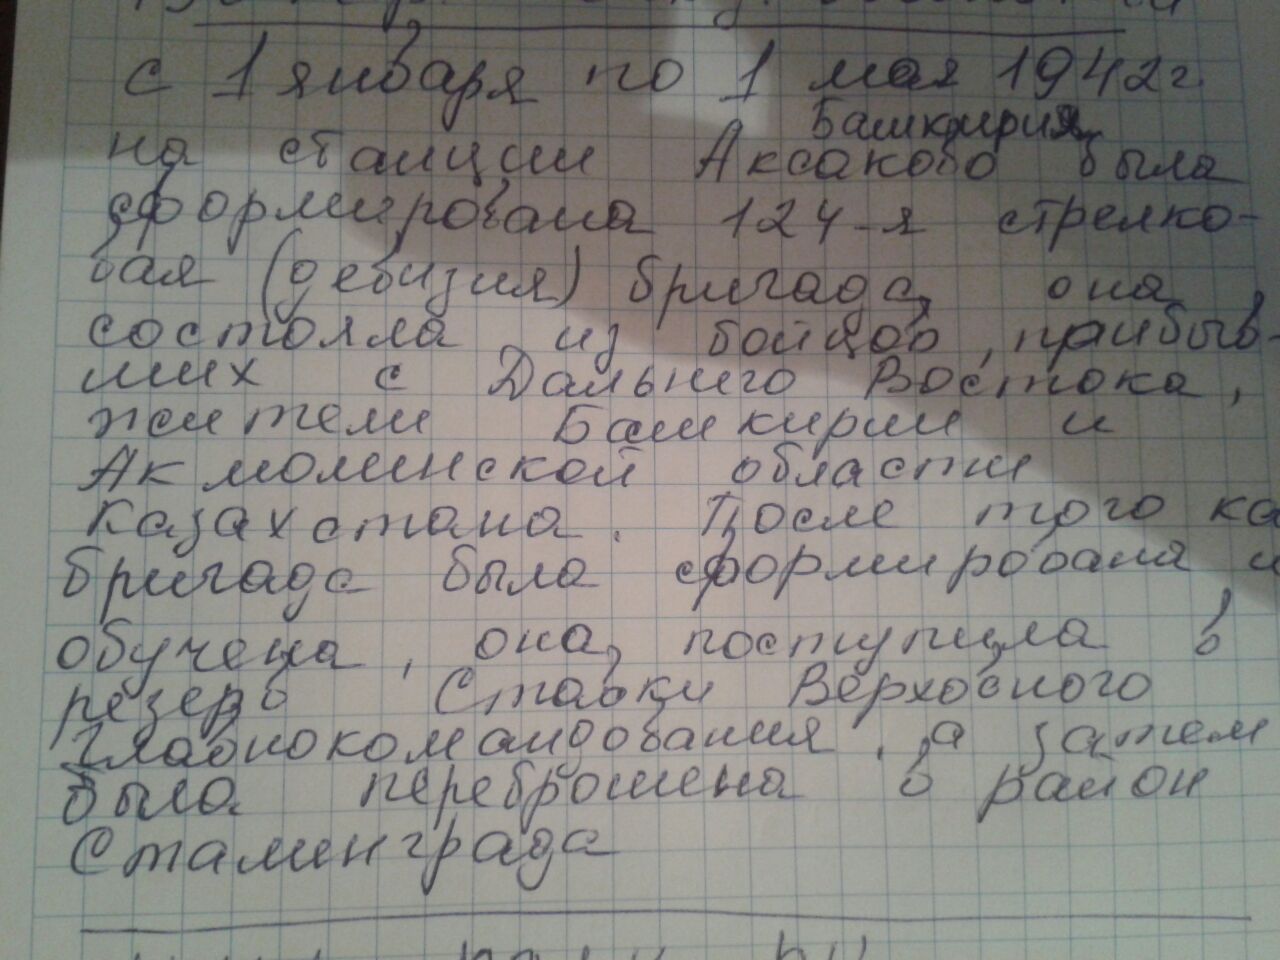 с 1 января по 1 мая 1942 г.
Башкирия
на станции Аксаково была
сформирована 124-я стрелко-
вая (девизия) бригада, она
состояла из бойцов, прибыв-
ших с Дальнего Востока,
жители Башкирии и
Акмолинской области
Казахстана. После того ка
бригада была сформирована и
обучена, она, поступила в
резерв Ставки Верховного
главнокомандования, а затем
была переброшена в район
Сталинграда